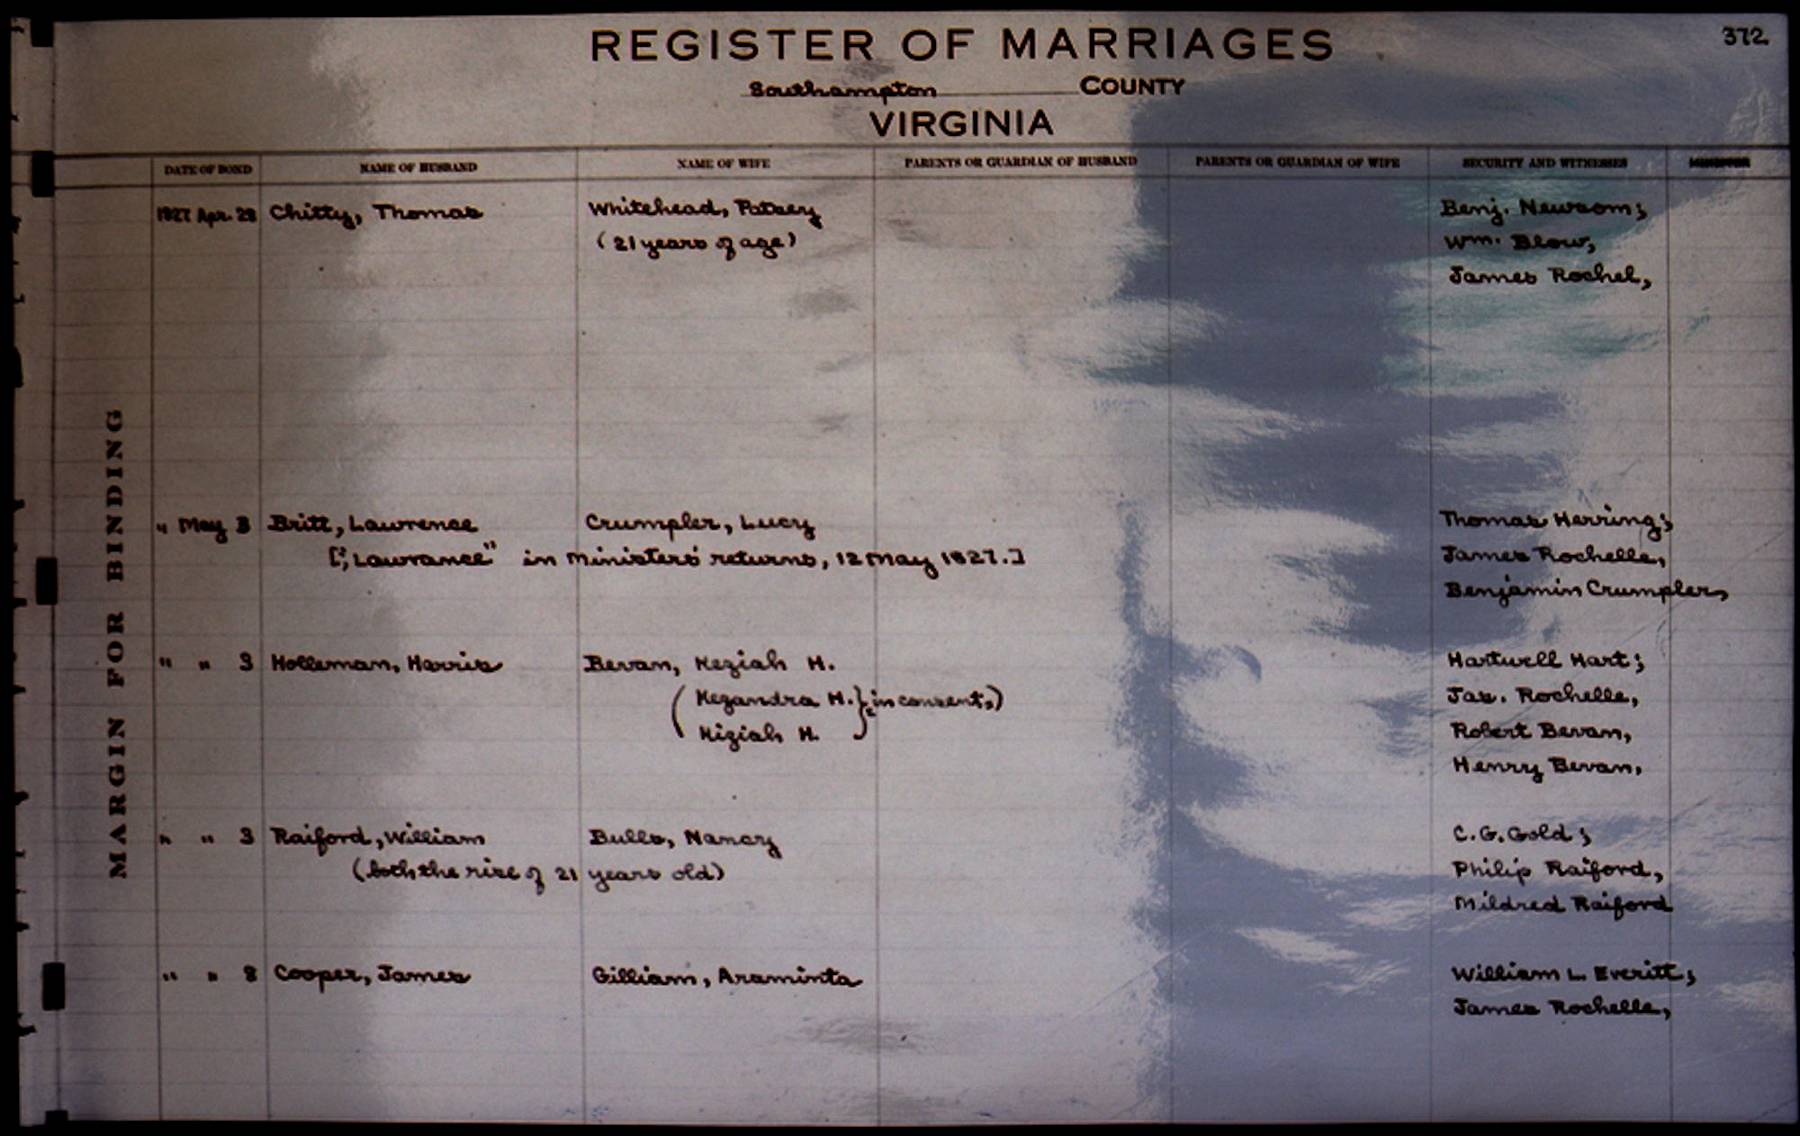 372
REGISTER OF MARRIAGES
Southampton COUNTY
VIRGINIA
DATE OF BOND NAME OF HUSBAND NAME OF WIFE PARENTS OR GUARDIAN OF HUSBAND PARENTS OR GUARDIAN OF WIFE SECURITY AND WITNESSES
1827 Apr. 28 Chitty, Thomas Whitehead, Patsey Benj. Newsom;
(21 years of age) Wm. Blow,
James Rochel,
" May 3 Britt, Lawrence Crumpler, Lucy Thomas Herring;
[; Lawrance" in Ministers' returns, 12 May 1827.] James Rochelle,
Benjamin Crumpler,
" " 3 Holleman, Harris Bevan, Keziah H. Hartwell Hart;
( Kezandra H. } in consent,) Jas. Rochelle,
Kiziah H. Robert Bevan,
Henry Bevan,
" " 3 Raiford, William Bulls, Nancy C. G. Gold;
(both the rise of 21 years old) Philip Raiford,
Mildred Raiford
" " 8 Cooper, James Gilliam, Araminta William L. Everitt;
James Rochelle,
MARGIN FOR BINDING